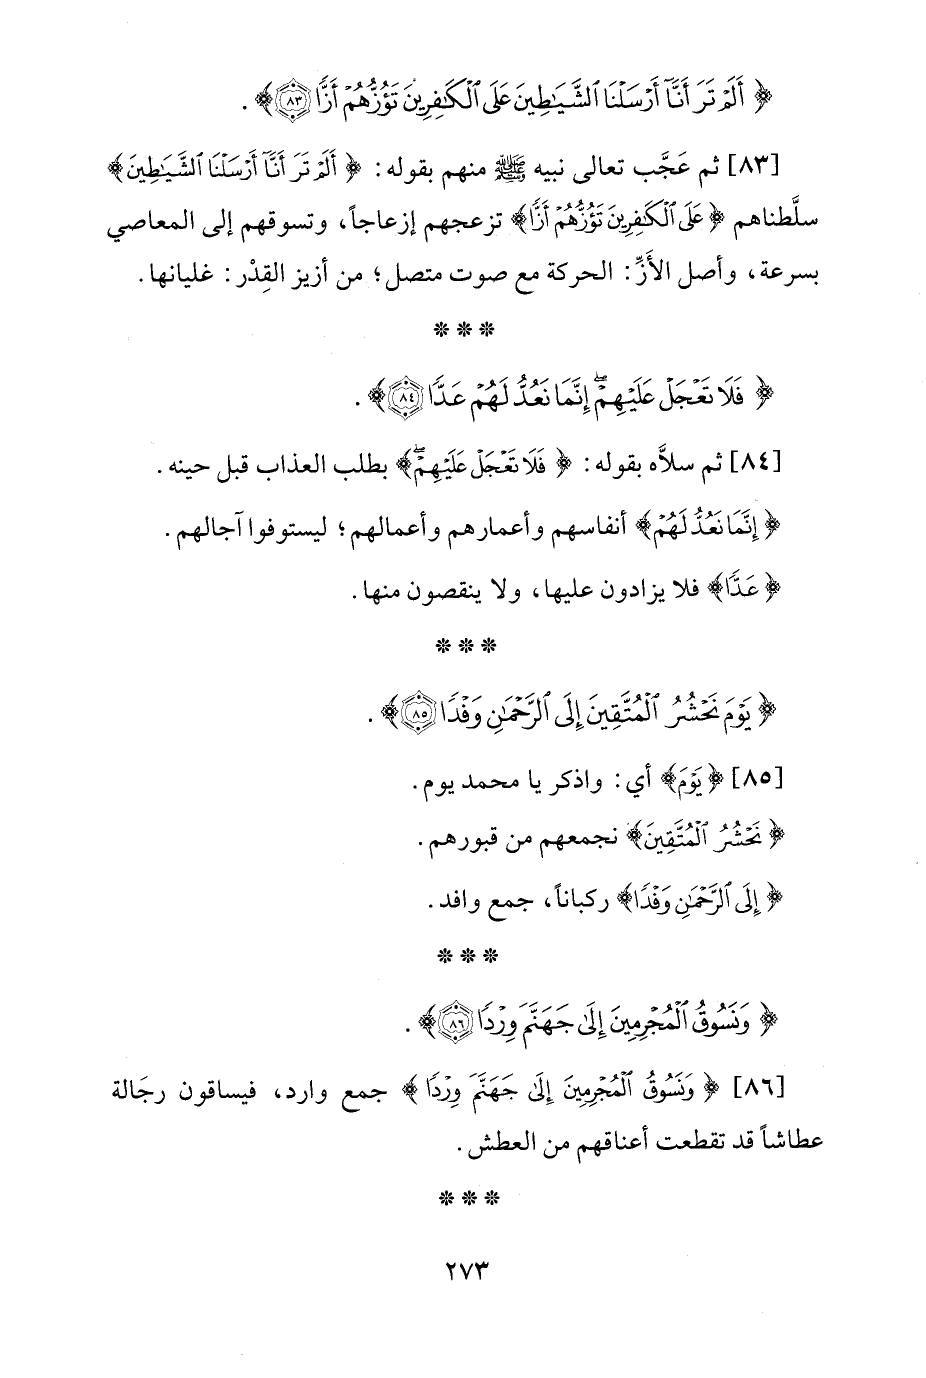 ﴿ أَلَمْ تَرَ أَنَّآ أَرْسَلْنَا ٱلشَّيَـٰطِينَ عَلَى ٱلْكَـٰفِرِينَ تَؤُزُّهُمْ أَزًّا ٨٣ ﴾ .
[٨٣] ثم عَجَّب تعالى نبيه ﷺ منهم بقوله : ﴿ أَلَمْ تَرَ أَنَّآ أَرْسَلْنَا ٱلشَّيَـٰطِينَ ﴾
سلَّطناهم ﴿ عَلَى ٱلْكَـٰفِرِينَ تَؤُزُّهُمْ أَزًّا ﴾ تزعجهم إزعاجاً، وتسوقهم إلى المعاصي
بسرعة، وأصل الأَزِّ: الحركة مع صوت متصل؛ من أزيز القِدْر: غليانها.
* * *
﴿ فَلَا تَعْجَلْ عَلَيْهِمْ ۖ إِنَّمَا نَعُدُّ لَهُمْ عَدًّا ٨٤ ﴾ .
[٨٤] ثم سلاَّه بقوله: ﴿ فَلَا تَعْجَلْ عَلَيْهِمْ ۖ ﴾ بطلب العذاب قبل حينه.
﴿ إِنَّمَا نَعُدُّ لَهُمْ ﴾ أنفاسهم وأعمارهم وأعمالهم؛ ليستوفوا آجالهم.
﴿ عَدًّا ﴾ فلا يزادون عليها، ولا ينقصون منها.
* * *
﴿ يَوْمَ نَحْشُرُ ٱلْمُتَّقِينَ إِلَى ٱلرَّحْمَـٰنِ وَفْدًا ٨٥ ﴾ .
[٨٥] ﴿ يَوْمَ ﴾ أي: واذكر يا محمد يوم.
﴿ نَحْشُرُ ٱلْمُتَّقِينَ ﴾ نجمعهم من قبورهم.
﴿ إِلَى ٱلرَّحْمَـٰنِ وَفْدًا ﴾ ركباناً، جمع وافد.
* * *
﴿ وَنَسُوقُ ٱلْمُجْرِمِينَ إِلَىٰ جَهَنَّمَ وِرْدًا ٨٦ ﴾ .
[٨٦] ﴿ وَنَسُوقُ ٱلْمُجْرِمِينَ إِلَىٰ جَهَنَّمَ وِرْدًا ﴾ جمع وارد، فيساقون رجَالة
عطاشاً قد تقطعت أعناقهم من العطش.
* * *
٢٧٣